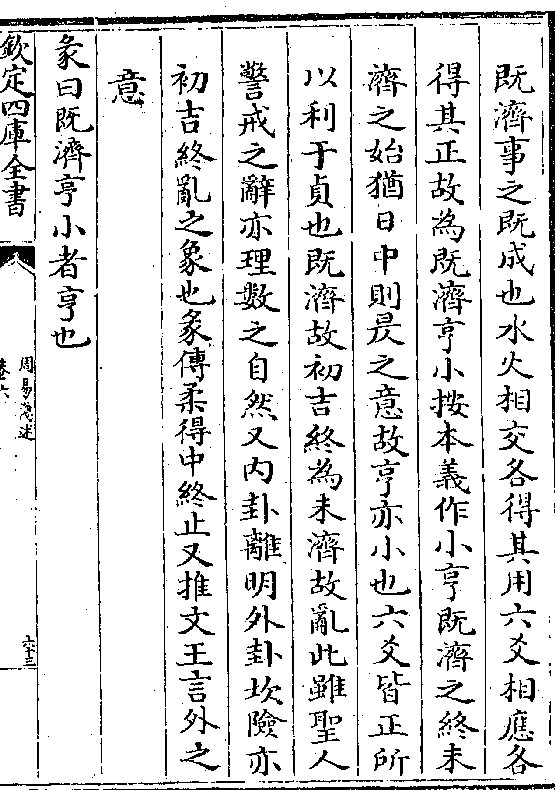 既濟事之既成也水火相交各得其用六爻相應各
得其正故為既濟亨小按本義作小亨既濟之終未
濟之始猶日中則昃之意故亨亦小也六爻皆正所
以利于貞也既濟故初吉終為未濟故亂此雖聖人
警戒之辭亦理數之自然又内卦離明外卦坎險亦
初吉終亂之象也彖傳柔得中終止又推文王言外之
意
彖曰既濟亨小者亨也
欽定四庫全書
周易 述
卷六
六十三